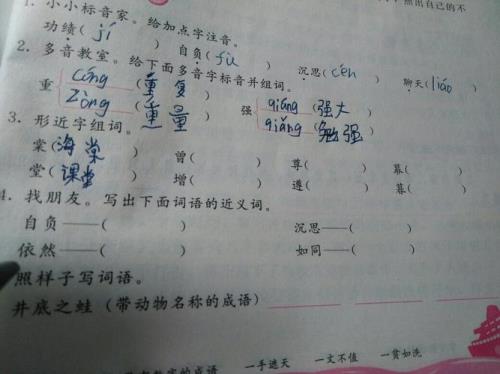 照出自己的不
1. 小小标音家。给加点字注音。
功绩(jí ) 自负(fù ) 沉思(cén ) 聊天(liáo )
2. 多音教室。给下面多音字标音并组词。
重 cóng (重复) 强 qiáng (强大)
zòng (重量) qiǎng (勉强)
3. 形近字组词。
棠(海棠) 曾( ) 尊( ) 幕( )
堂(课堂) 增( ) 遵( ) 暮( )
4. 找朋友。写出下面词语的近义词。
自负——( ) 沉思——( )
依然——( ) 如同——( )
照样子写词语。
井底之蛙(带动物名称的成语)
数字的成语 一手遮天 一文不值 一贫如洗